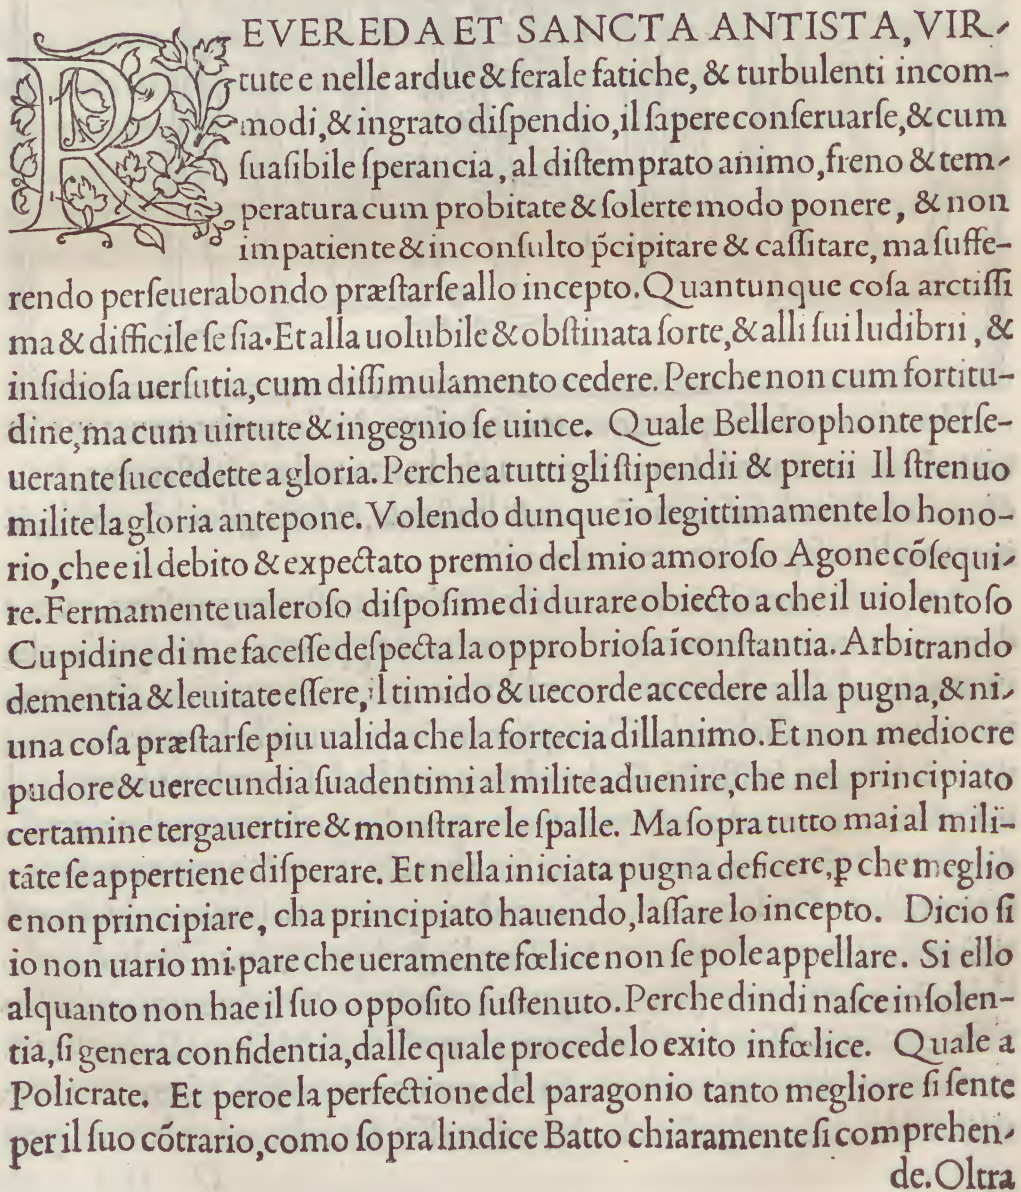 REVEREDA ET SANCTA ANTISTA, VIR-
tute e nelle ardue & ferale fatiche, & turbulenti incom-
modi, & ingrato diſpendio, il ſapere conſeruarſe, & cum
ſuaſibile ſperancia, al diſtemprato animo, freno & tem-
peratura cum probitate & ſolerte modo ponere, & non
impatiente & inconſulto p̄cipitare & caſſitare, ma ſuffe-
rendo perſeuerabondo præſtarſe allo incepto. Quantunque coſa arctiſſi
ma & difficile ſe ſia. Et alla uolubile & obſtinata ſorte, & alli ſui ludibrii, &
inſidioſa uerſutia, cum diſſimulamento cedere. Perche non cum fortitu-
dine, ma cum uirtute & ingegnio ſe uince. Quale Bellerophonte perſe-
uerante ſuccedette a gloria. Perche a tutti gli ſtipendii & pretii Il ſtrenuo
milite la gloria antepone. Volendo dunque io legittimamente lo hono-
rio, che e il debito & expectato premio del mio amoroſo Agone cõſequi-
re. Fermamente ualeroſo diſpoſime di durare obiecto a che il uiolentoſo
Cupidine di me faceſſe deſpecta la opprobrioſa īconſtantia. Arbitrando
dementia & leuitate eſſere, il timido & uecorde accedere alla pugna, & ni-
una coſa præſtarſe piu ualida che la fortecia dillanimo. Et non mediocre
pudore & uerecundia ſuadentimi al milite aduenire, che nel principiato
certamine tergauertire & monſtrare le ſpalle. Ma ſopra tutto mai al mili-
tãte ſe appertiene diſperare. Et nella iniciata pugna deficere, ꝑ che meglio
e non principiare, cha principiato hauendo, laſſare lo incepto. Dicio ſi
io non uario mi pare che ueramente fœlice non ſe pole appellare. Si ello
alquanto non hae il ſuo oppoſito ſuſtenuto. Perche dindi naſce inſolen-
tia, ſi genera confidentia, dalle quale procede lo exito infœlice. Quale a
Policrate. Et peroe la perfectione del paragonio tanto megliore ſi ſente
per il ſuo cõtrario, como ſopra lindice Batto chiaramente ſi comprehen-
de. Oltra